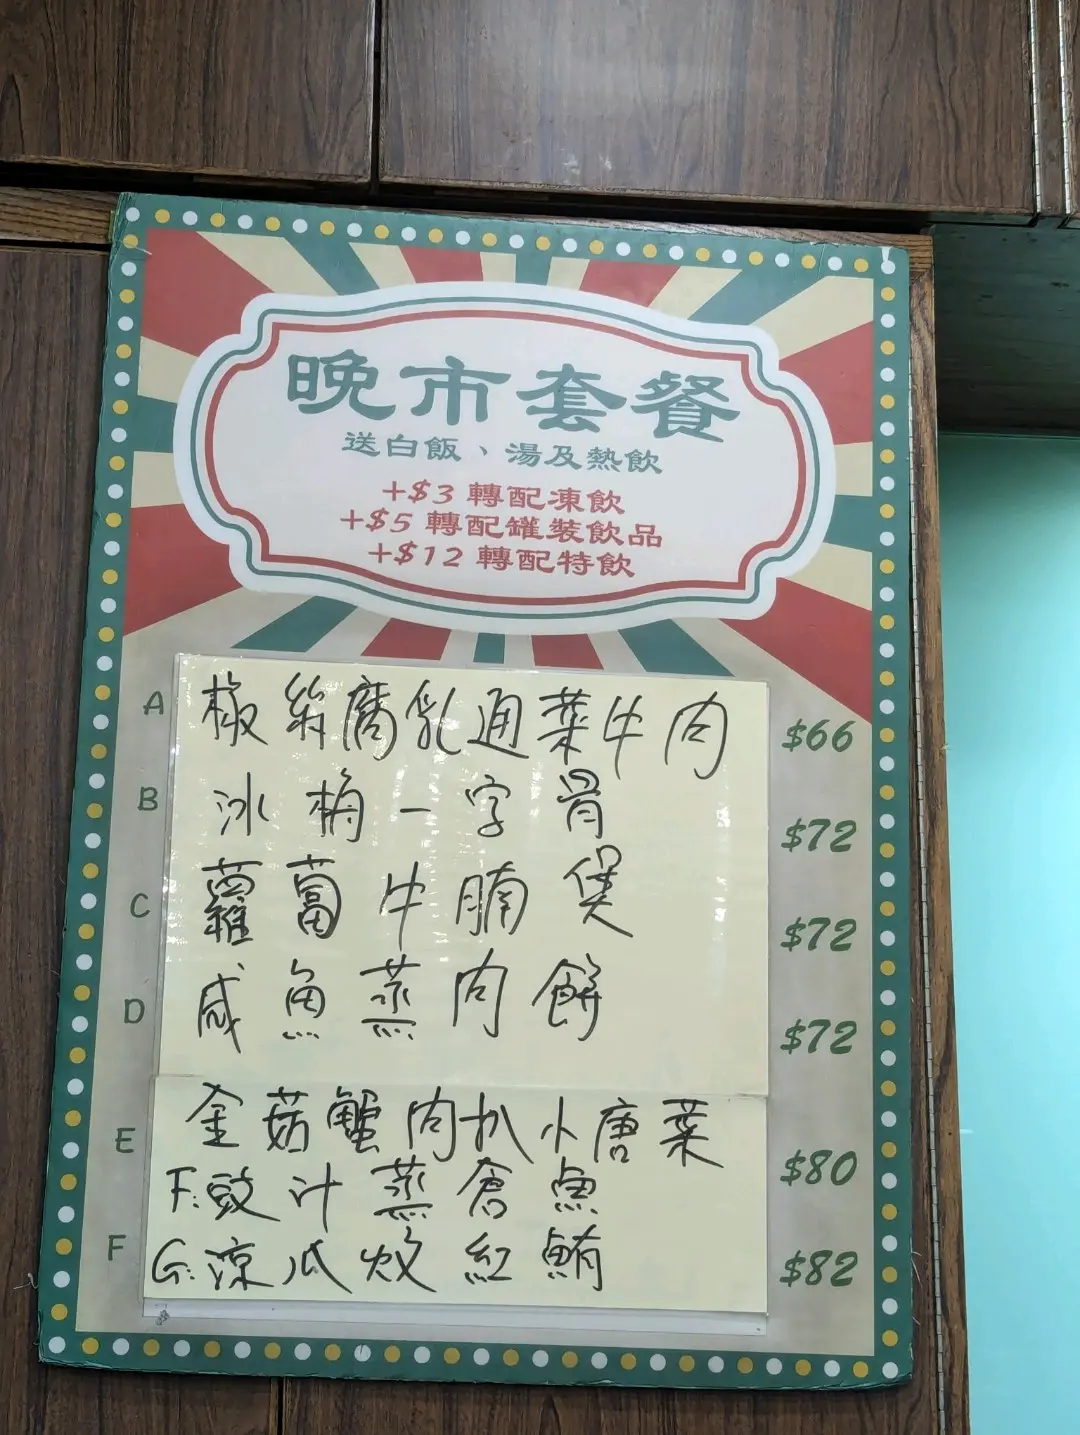 晚市套餐
送白飯、湯及熱飲
+$3 轉配凍飲
+$5 轉配罐裝飲品
+$12 轉配特飲
A 椒絲腐乳通菜牛肉 $66
B 冰梅一字骨 $72
C 蘿蔔牛腩煲 $72
D 咸魚蒸肉餅 $72
E 金菇蟹肉扒小唐菜 $80
F:豉汁蒸倉魚
F G:涼瓜炆紅鮋 $82